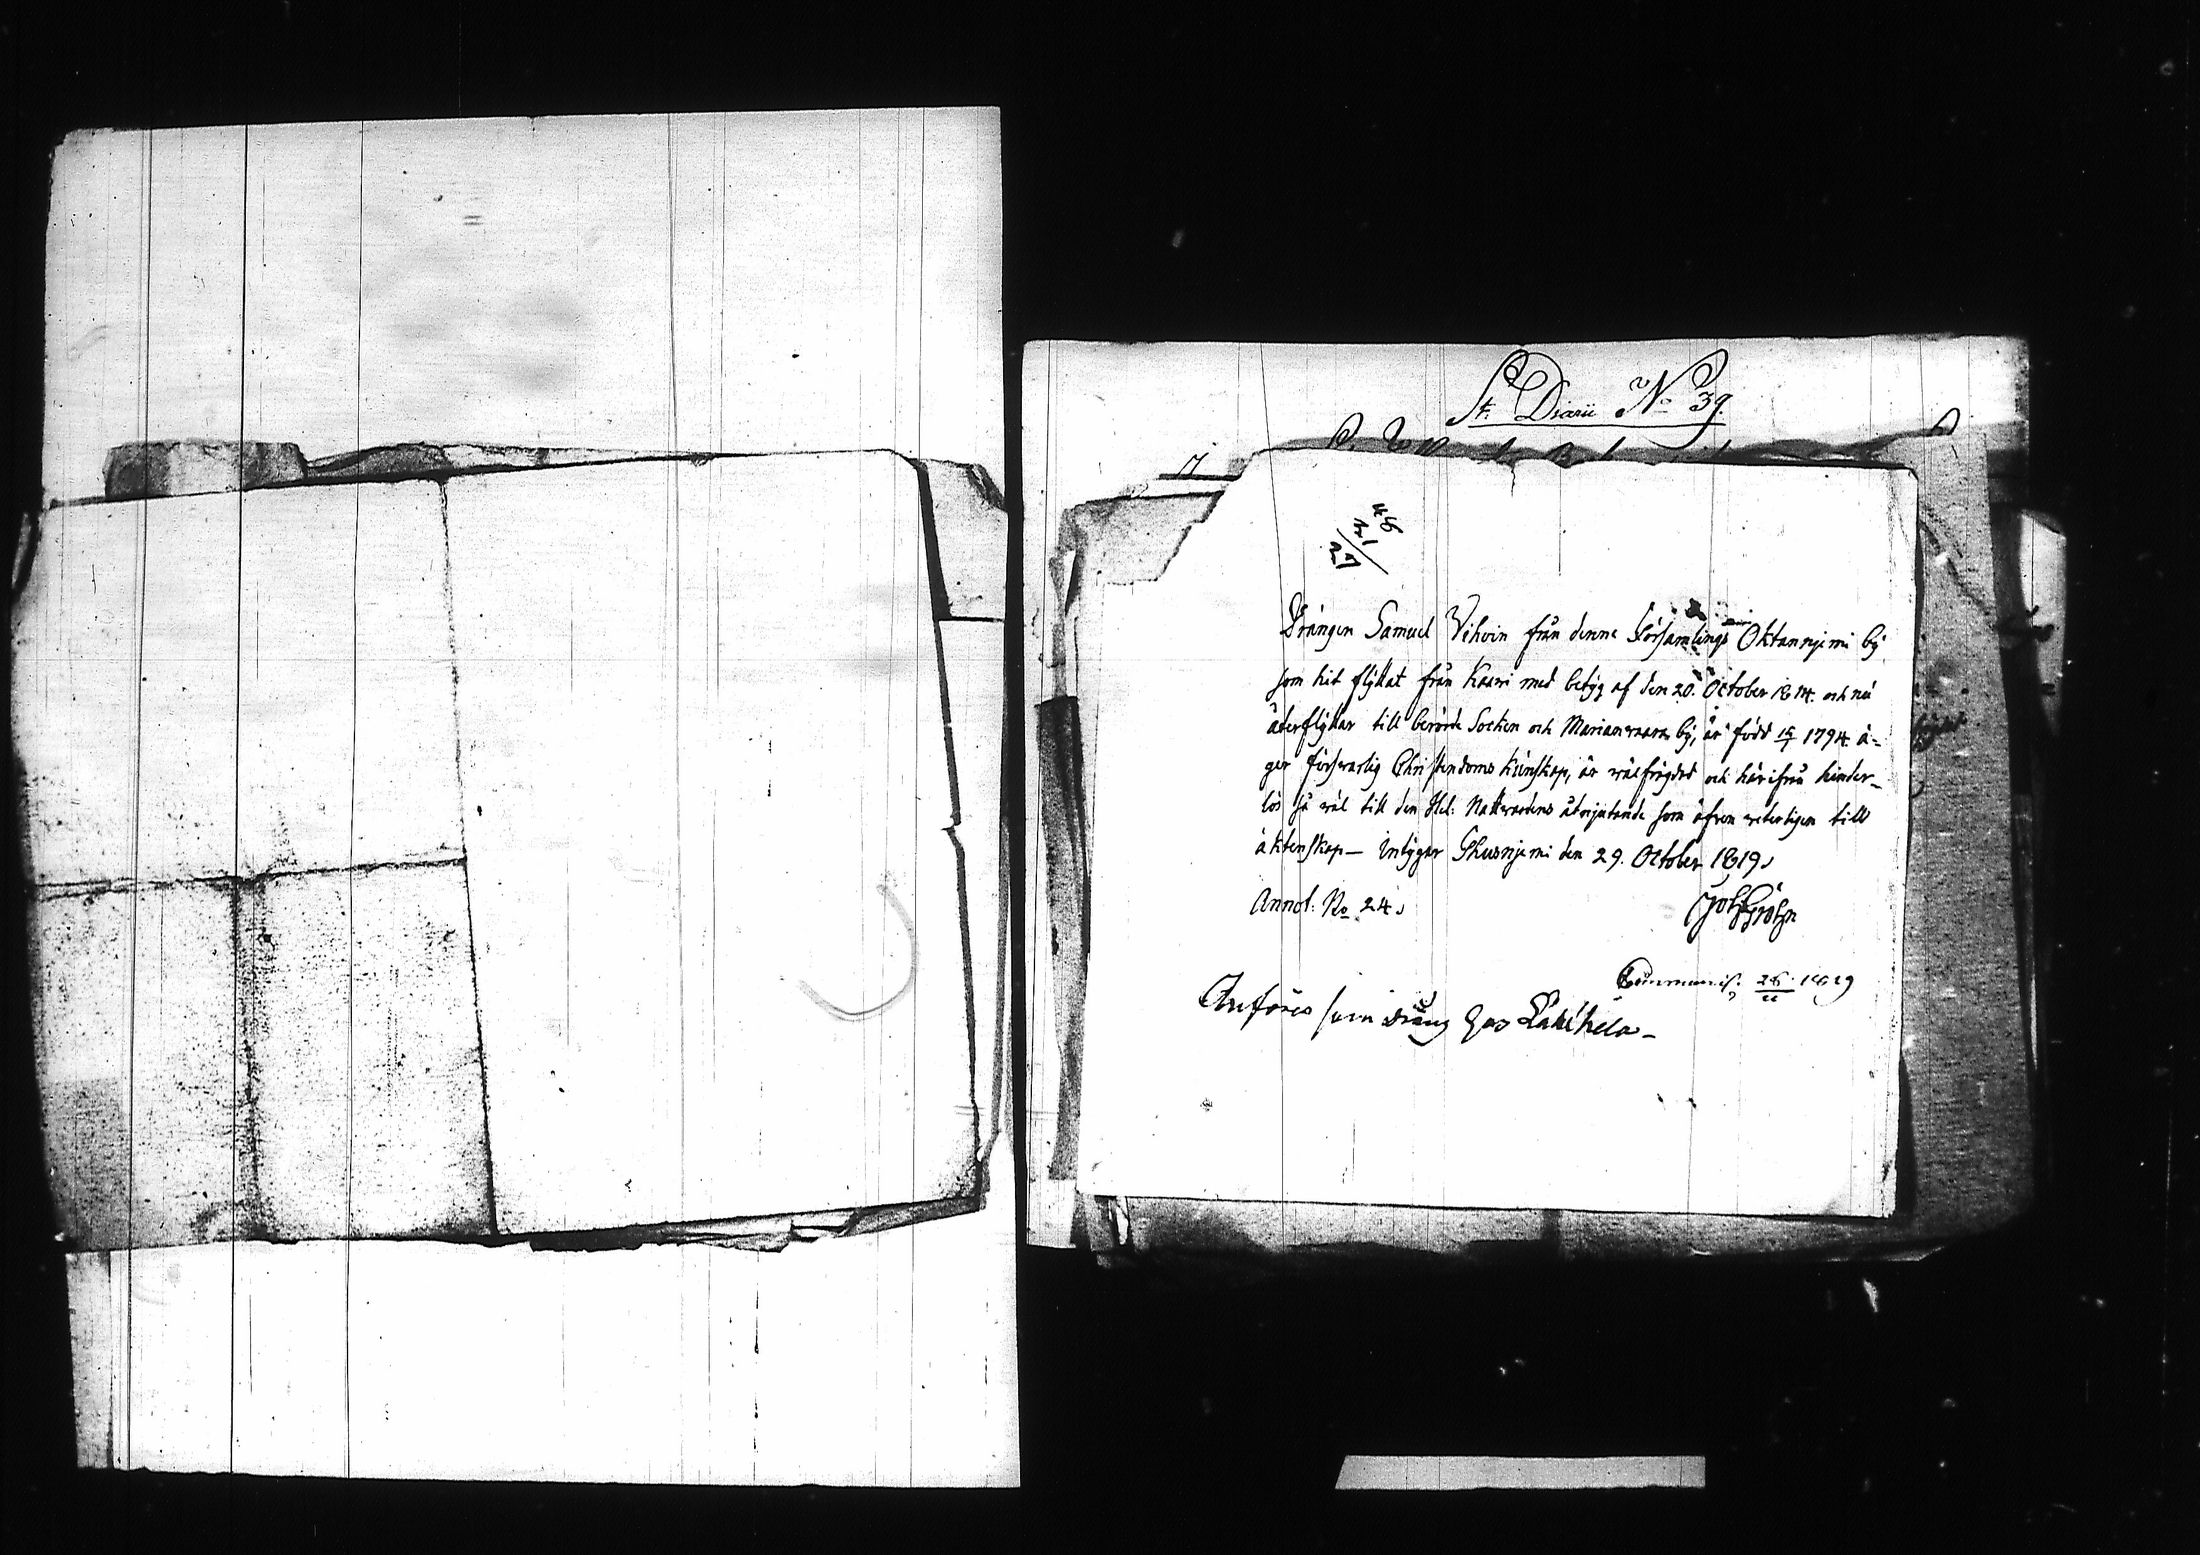 St. Diarii No 39.
Drängen Samuel Vihvin från denne Församlings Oktanniemi by
som hit flyttat från Kaavi med betyg af den 20. October 1814. och nu
återflyttar till berörde Socken och Marianvaara by, är född 1794 ä-
ger försvarlig Christendoms kunskap, är välfrägdad och härifrån hinder-
lös så väl till den Hel: Nattvardens åtnjutande som äfven vederligen till
äktenskap— intygar Idensalmi den 29. October 1819.
Annot: No 24.
Communic: 26/11 1819
Anföres som dräng hos Lähihela–